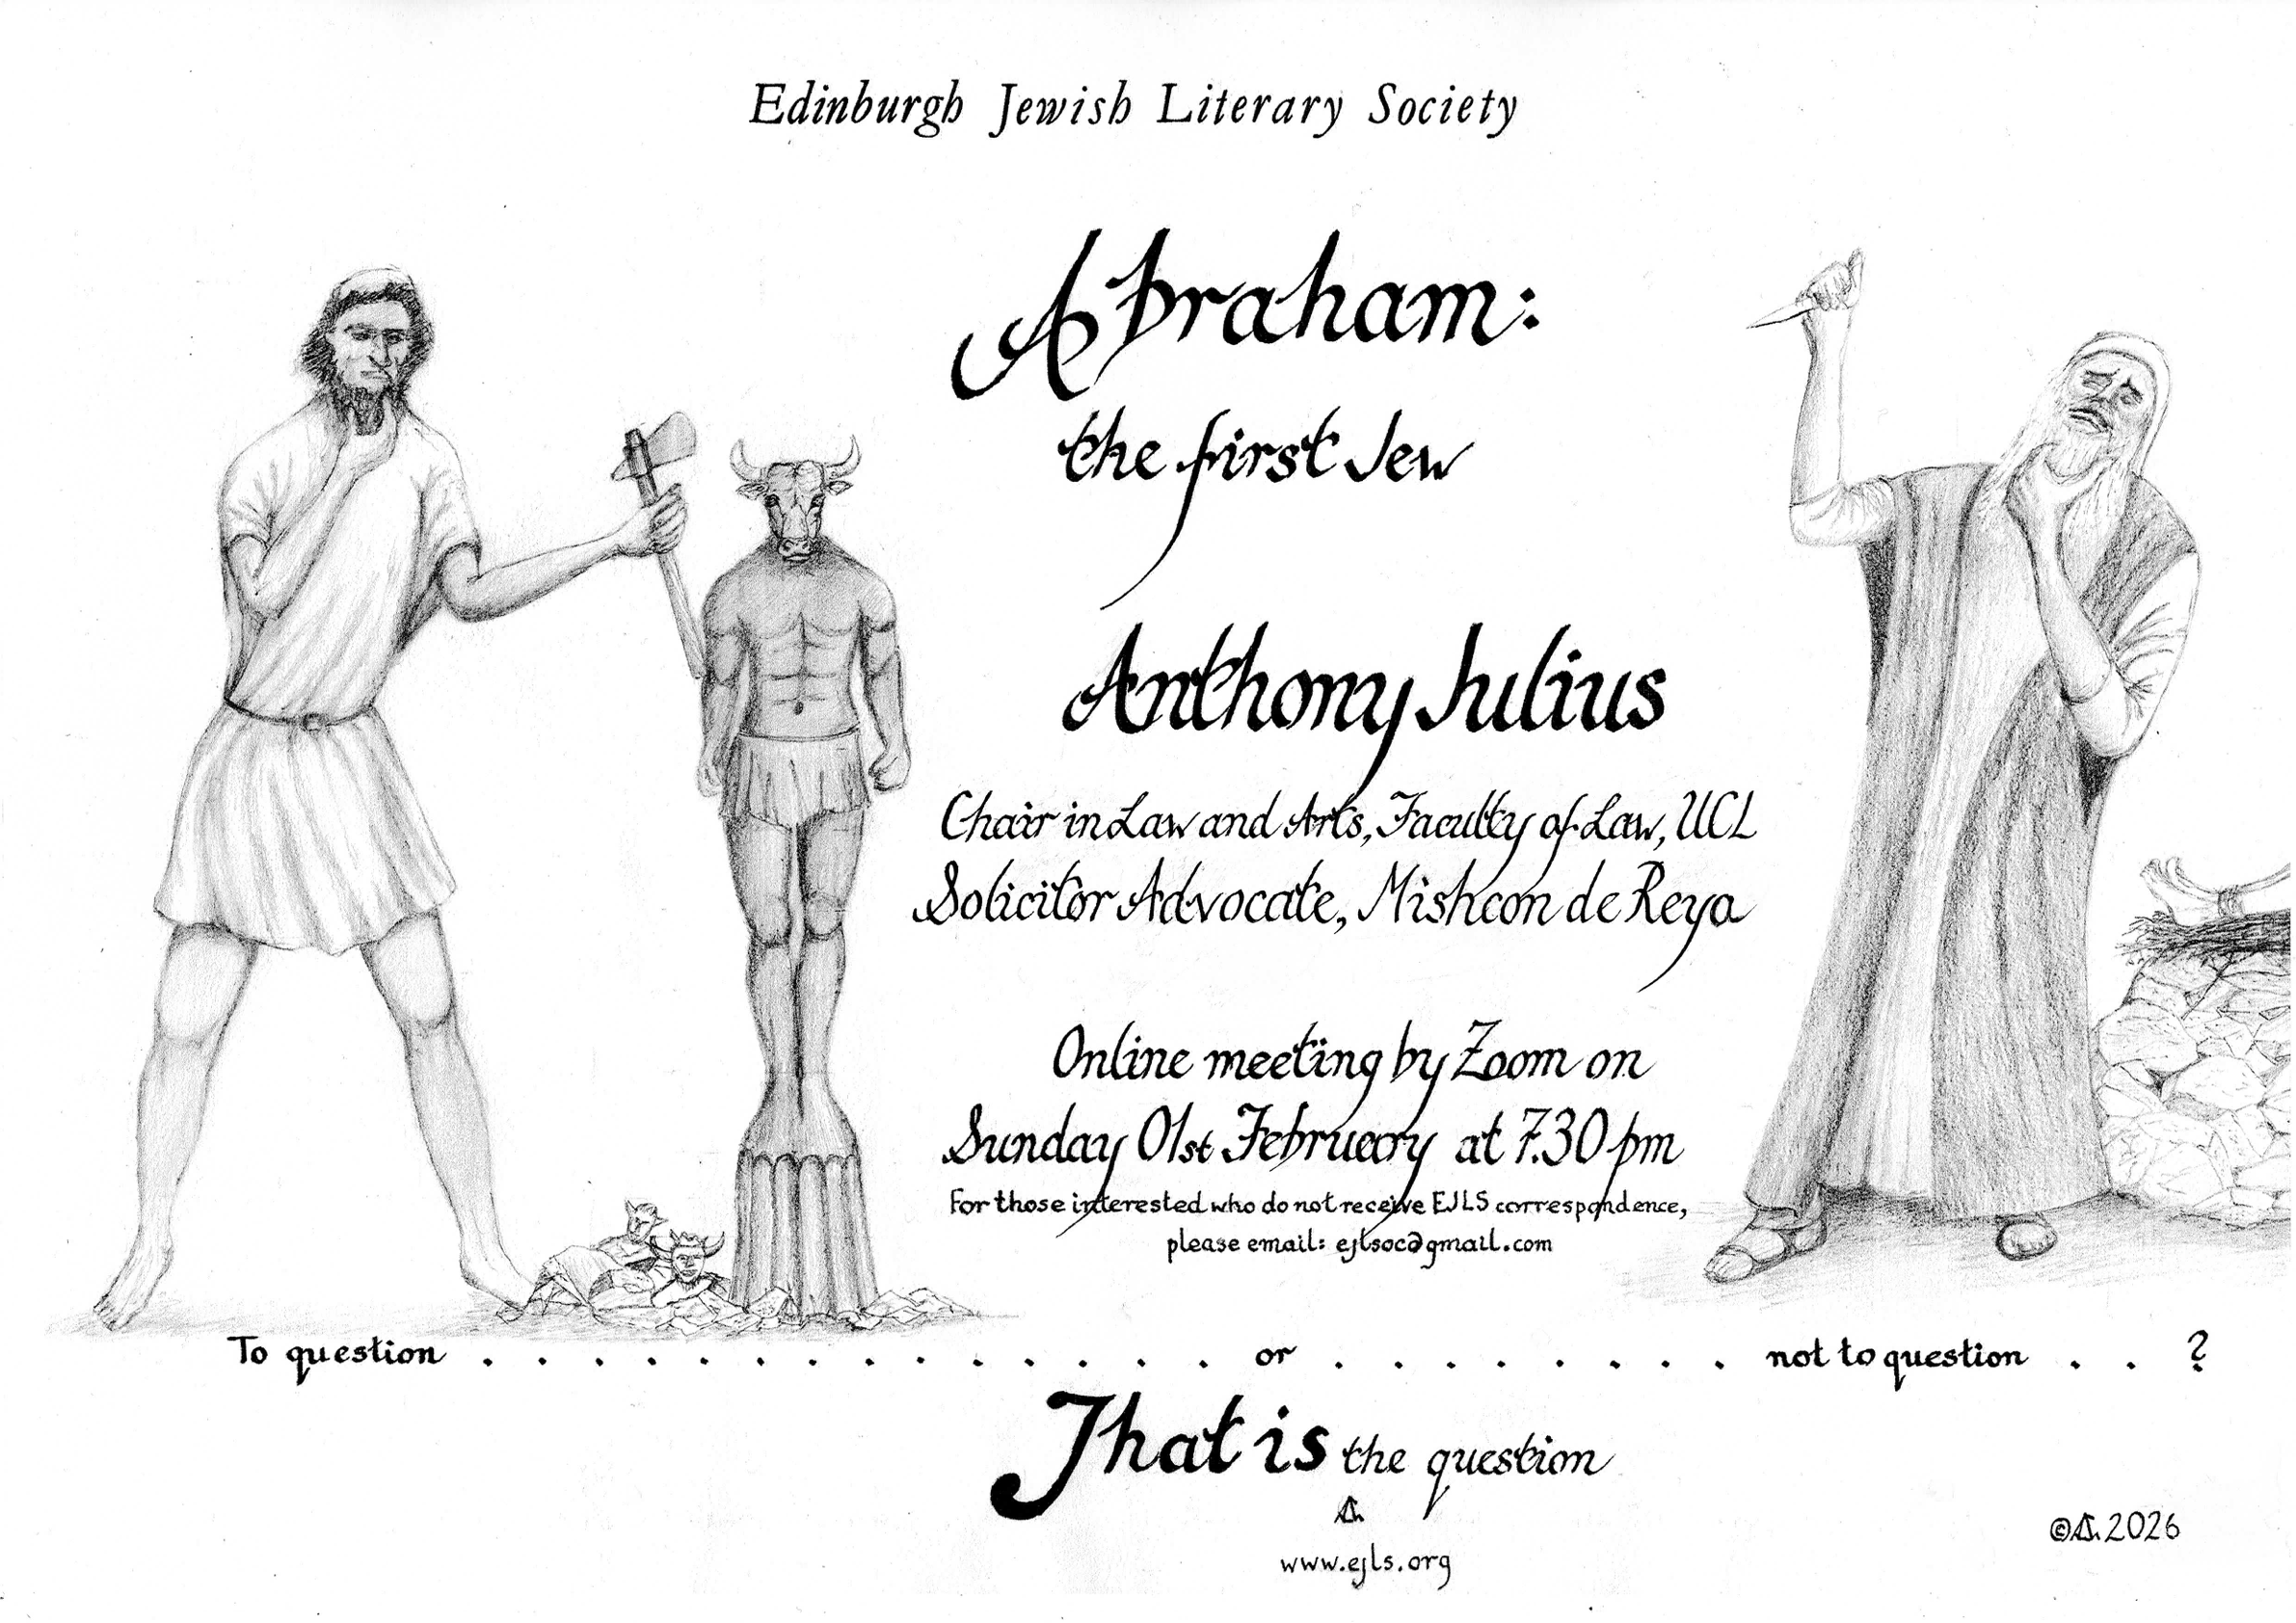 Edinburgh Jewish Literary Society
Abraham:
the first Jew
Anthony Julius
Chair in Law and Arts, Faculty of Law, UCL
Solicitor Advocate, Mishcon de Reya
Online meeting by Zoom on
Sunday 01st February at 7.30 pm
For those interested who do not receive EJLS correspondence,
please email: ejlsoc@gmail.com
To question . . . . . . . . . . . . . . or . . . . . . . . not to question . . ?
That is the question
www.ejls.org
© 2026